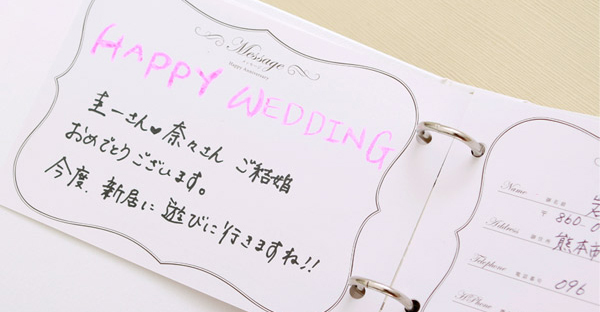 Message
メッセージ
Happy Anniversary
HAPPY WEDDING
圭一さん♥奈々さん ご結婚
おめでとうございます。
今度、新居に遊びに行きますね!!
Name 御名前
〒 860-0
Address 御住所 熊本市
Telephone 電話番号 096
H.Phone